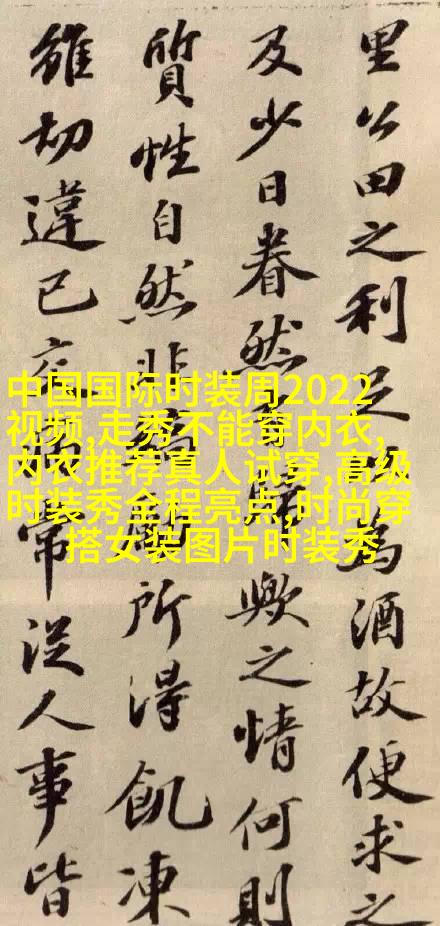 里公田之利足為酒故便求之
及少日眷然歟之情何則
質性自然非所得飢凍
雖切違己從人事皆
中国国际时装周2022
视频,走秀不能穿内衣,
内衣推荐真人试穿,高级
时装秀全程亮点,时尚穿
搭女装图片时装秀